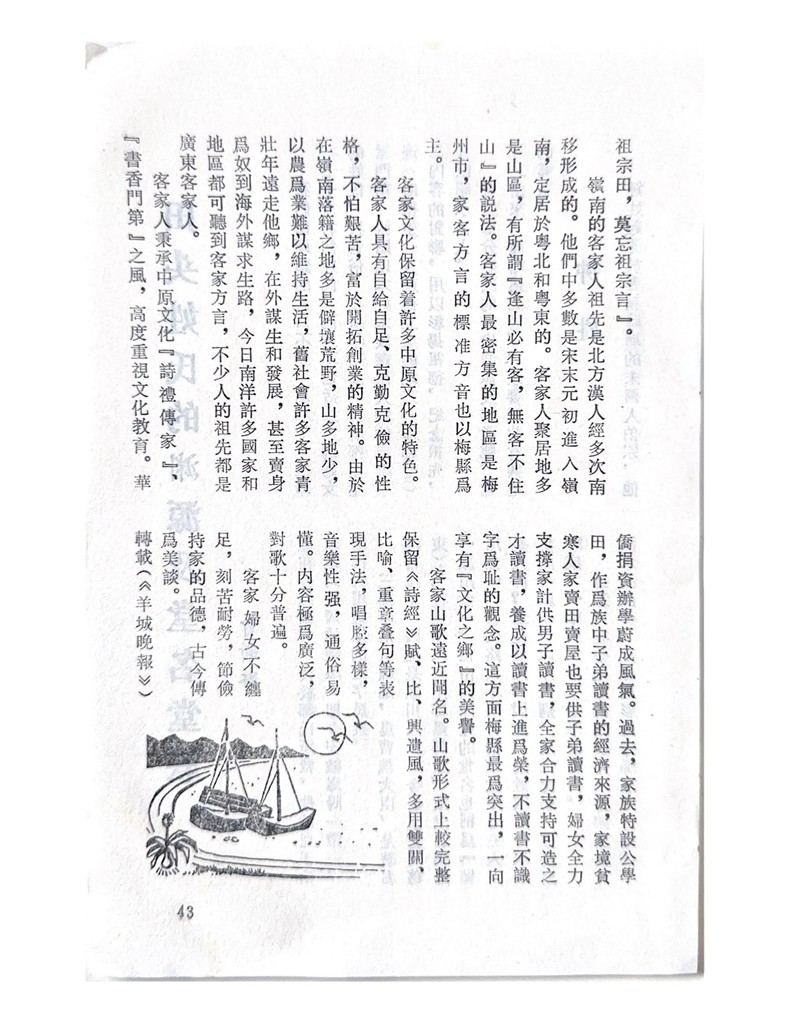 祖宗田，莫忘祖宗言』。
嶺南的客家人祖先是北方漢人經多次南
移形成的。他們中多數是宋末元初進入嶺
南，定居於粵北和粵東的。客家人聚居地多
是山區，有所謂『逢山必有客，無客不住
山』的説法。客家人最密集的地區是梅
州市，家客方言的標准方音也以梅縣爲
主。
客家文化保留着許多中原文化的特色。
客家人具有自給自足、克勤克儉的性
格，不怕艱苦，富於開拓創業的精神。由於
在嶺南落籍之地多是僻壤荒野，山多地少，
以農爲業難以維持生活，舊社會許多客家青
壯年遠走他鄉，在外謀生和發展，甚至賣身
爲奴到海外謀求生路，今日南洋許多國家和
地區都可聽到客家方言，不少人的祖先都是
廣東客家人。
客家人秉承中原文化『詩禮傳家』、
『書香門第』之風，高度重視文化教育。華
僑捐資辦學蔚成風氣。過去，家族特設公學
田，作爲族中子弟讀書的經濟來源，家境貧
寒人家賣田賣屋也要供子弟讀書，婦女全力
支撐家計供男子讀書，全家合力支持可造之
才讀書，養成以讀書上進爲榮，不讀書不識
字爲耻的觀念。這方面梅縣最爲突出，一向
享有『文化之鄉』的美譽。
客家山歌遠近聞名。山歌形式上較完整
保留《詩經》賦、比、興遺風，多用雙關、
比喻、重章叠句等表
現手法，唱腔多樣，
音樂性强，通俗易
懂。内容極爲廣泛，
對歌十分普遍。
客家婦女不纏
足，刻苦耐勞，節儉
持家的品德，古今傳
爲美談。
轉載（《羊城晚報》）
43